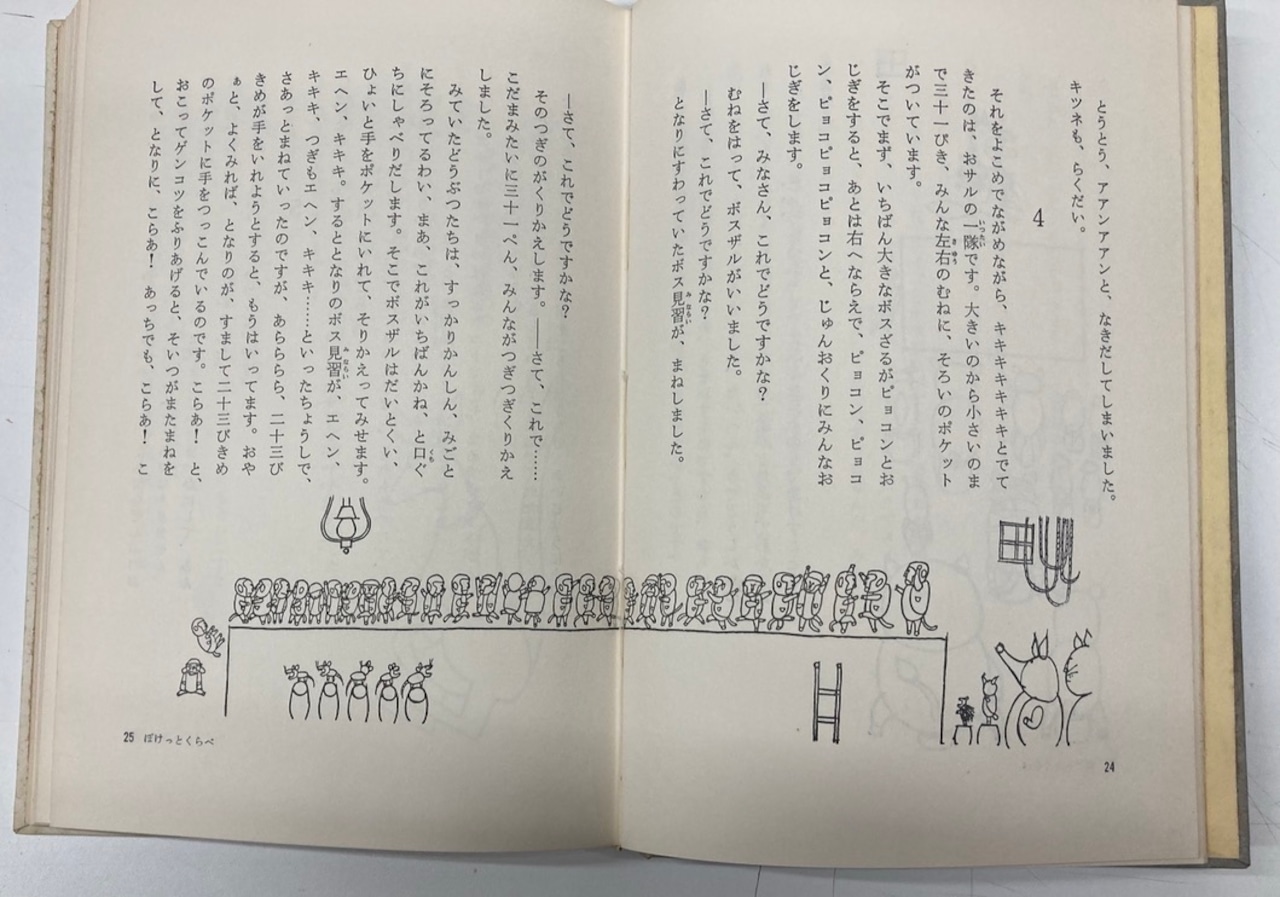 とうとう、アアンアアンと、なきだしてしまいました。
キツネも、らくだい。
4
それをよこめでながめながら、キキキキキキキとでて
きたのは、おサルの一隊です。大きいのから小さいのま
で三十一ぴき、みんな左右のむねに、そろいのポケット
がついています。
そこでまず、いちばん大きなボスざるがピョコンとお
じぎをすると、あとは右へならえで、ピョコン、ピョコ
ン、ピョコピョコピョコンと、じゅんおくりにみんなお
じぎをします。
―さて、みなさん、これでどうですかな?
むねをはって、ボスザルがいいました。
―さて、これでどうですかな?
となりにすわっていたボス見習が、まねしました。
24
―さて、これでどうですかな?
そのつぎのがくりかえします。――さて、これで……
こだまみたいに三十一ぺん、みんながつぎつぎくりかえ
しました。
みていたどうぶつたちは、すっかりかんしん、みごと
にそろってるわい、まあ、これがいちばんかね、と口ぐ
ちにしゃべりだします。そこでボスザルはだいとくい、
ひょいと手をポケットにいれて、そりかえってみせます。
エヘン、キキキ。するととなりのボス見習が、エヘン、
キキキ、つぎもエヘン、キキキ……といったちょうしで、
さあっとまねていったのですが、あらららら、二十三び
きめが手をいれようとすると、もうはいってます。おや
ぁと、よくみれば、となりのが、すまして二十三びきめ
のポケットに手をつっこんでいるのです。こらあ! と、
おこってゲンコツをふりあげると、そいつがまたまねを
して、となりに、こらあ! あっちでも、こらあ! こ
25 ぽけっとくらべ